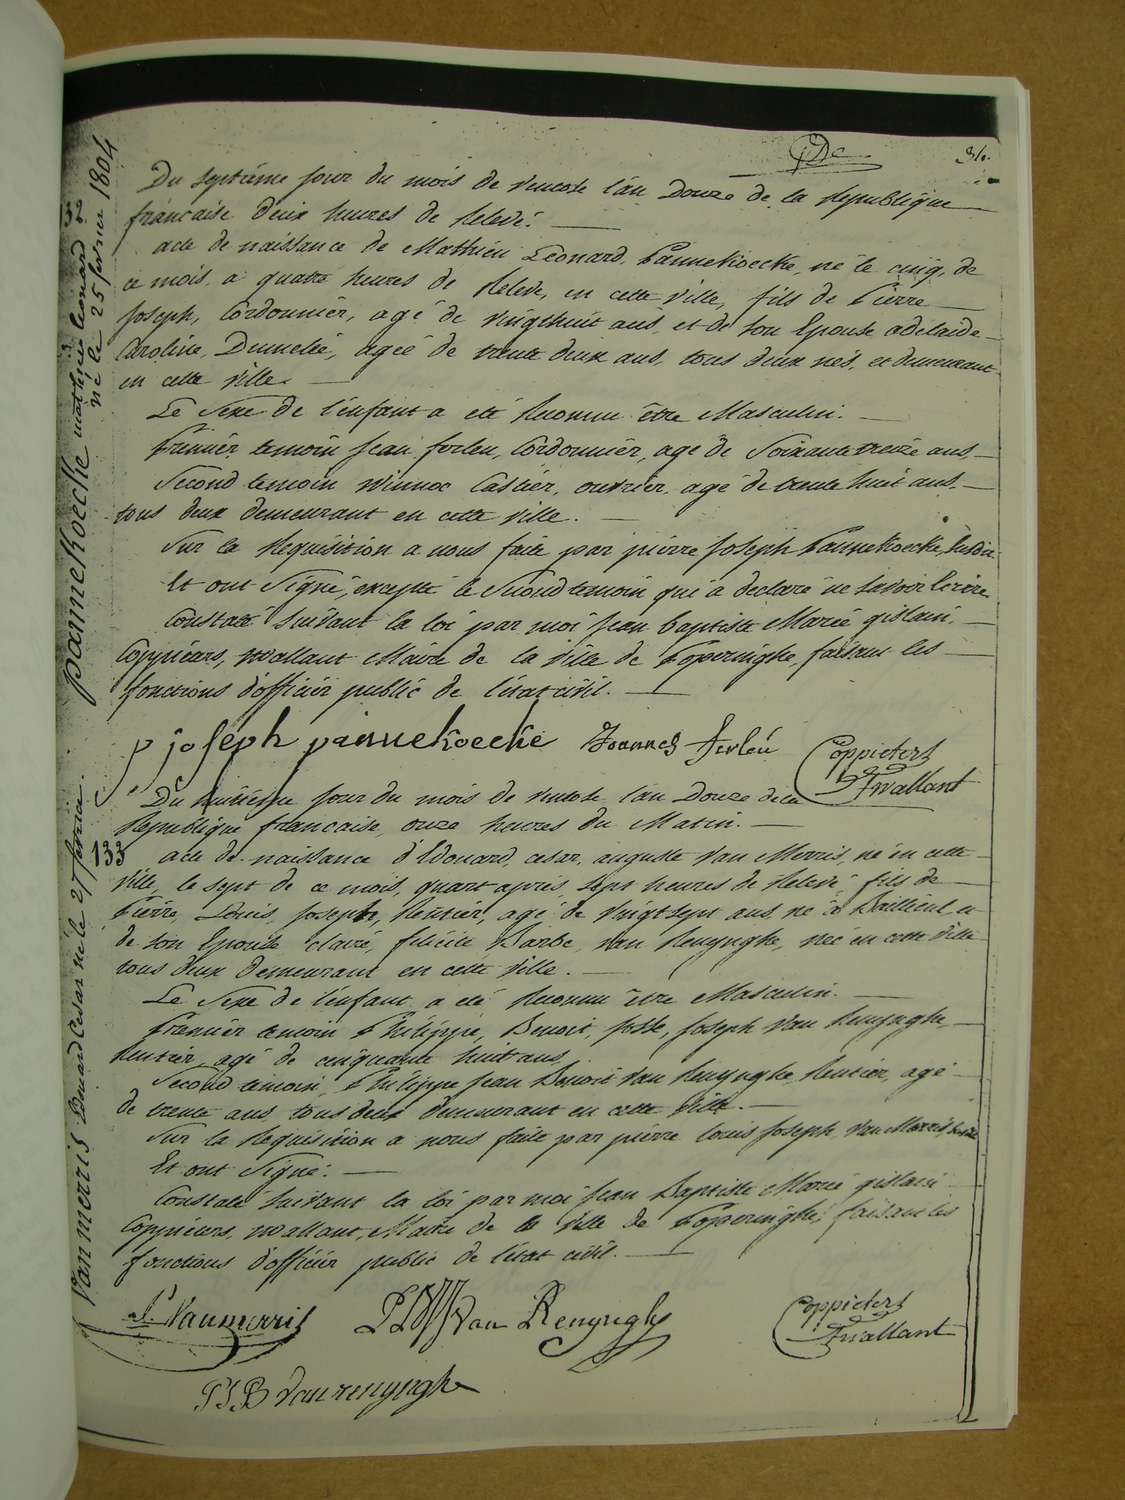 34.
132
pannekoecke mathieu leonard
né le 25 fevrier 1804
Du septiéme jour du mois de ventose l'an Douze de la Republique
francaise deux heures de Relevé.
acte de naissance de Mathieu Léonard, Pannekoecke, né le cinq, de
ce mois, a quatre heures de Relevé, en cette ville, fils de Pierre
Joseph, Cordonniér, agé de vingthuit ans, et de son Epouse adelaide
Caroline, agée de trente deux ans, tous deux nés, et demeurant
en cette ville.
Le Sexe de l'enfant a eté Reconnu être Masculin.
Premiér temoin Jean ferleu, Cordonniér, agé de Soixante treize ans,
Second temoin Winnoc Castier, ouvriér, agé de trente huit ans,
tous deux demeurant en cette ville.
Sur la Requisition a nous faite par pierre Joseph Pannekoecke, susdit
Et ont Signé, excepté le Second temoin qui a declaré ne savoir Ecrire
Constaté suivant la loi par moi Jean baptiste Marie gislain,
Coppieters, wallant Maire de la ville de Poperinghe, faisant les
fonctions d'officiér public de l'état civil.
p joseph pannekoecke Joannes ferleu Coppieters
Twallant
Vanmerris Eduard Cesar né le 27 fevrier
Du huitiéme jour du mois de ventose l'an Douze de la
Republique francaise, onze heures du Matin.
133 acte de naissance d'Edouard, cesar, auguste Van Merris, né en cette
ville, le sept de ce mois, quart aprés, sept heures de Relevé, fils de
Piérre, Louis, Joseph, Rentiér, agé de vingtsept ans, né à Bailleul et
de son Epouse claire, felicité Barbe, van Renynghe, née en cette ville
tous deux demeurant en cette ville.
Le Sexe de l'enfant a eté Reconnu être Masculin.
Premiér temoin Philippe, Benoit, Josse, Joseph Van Renynghe
Rentiér, agé de cinquante huit ans,
Second temoin, Philippe Jean Benoit Van Renynghe Rentiér, agé
de trente ans, tous deux demeurant en cette ville.
Sur la Requisition a nous faite par pierre louis Joseph Van Merris, susdit
Et ont Signé.
Constaté suivant la loi par moi Jean Baptiste Marie gislain
Coppieters, wallant, Maire de la ville de Poperinghe, faisant les
fonctions d'officiér public de l'état civil.
Vanmerris Van Renynghe Coppieters
Twallant
PJB Vanrenynghe